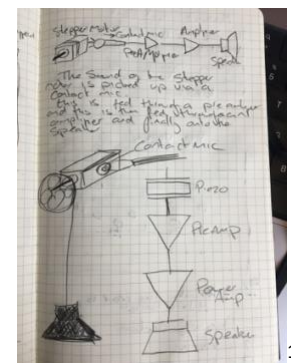 Stepper Motor Contact mic Amplifier
PreAmplifier Speaker
The Sound of the Stepper
motor is picked up via a
Contact mic.
this is fed through a pre amplifier
and this is then fed through
amplifier and finally onto the
Speaker
Contact Mic
Piezo
Pre Amp
Power
Amp
Speaker